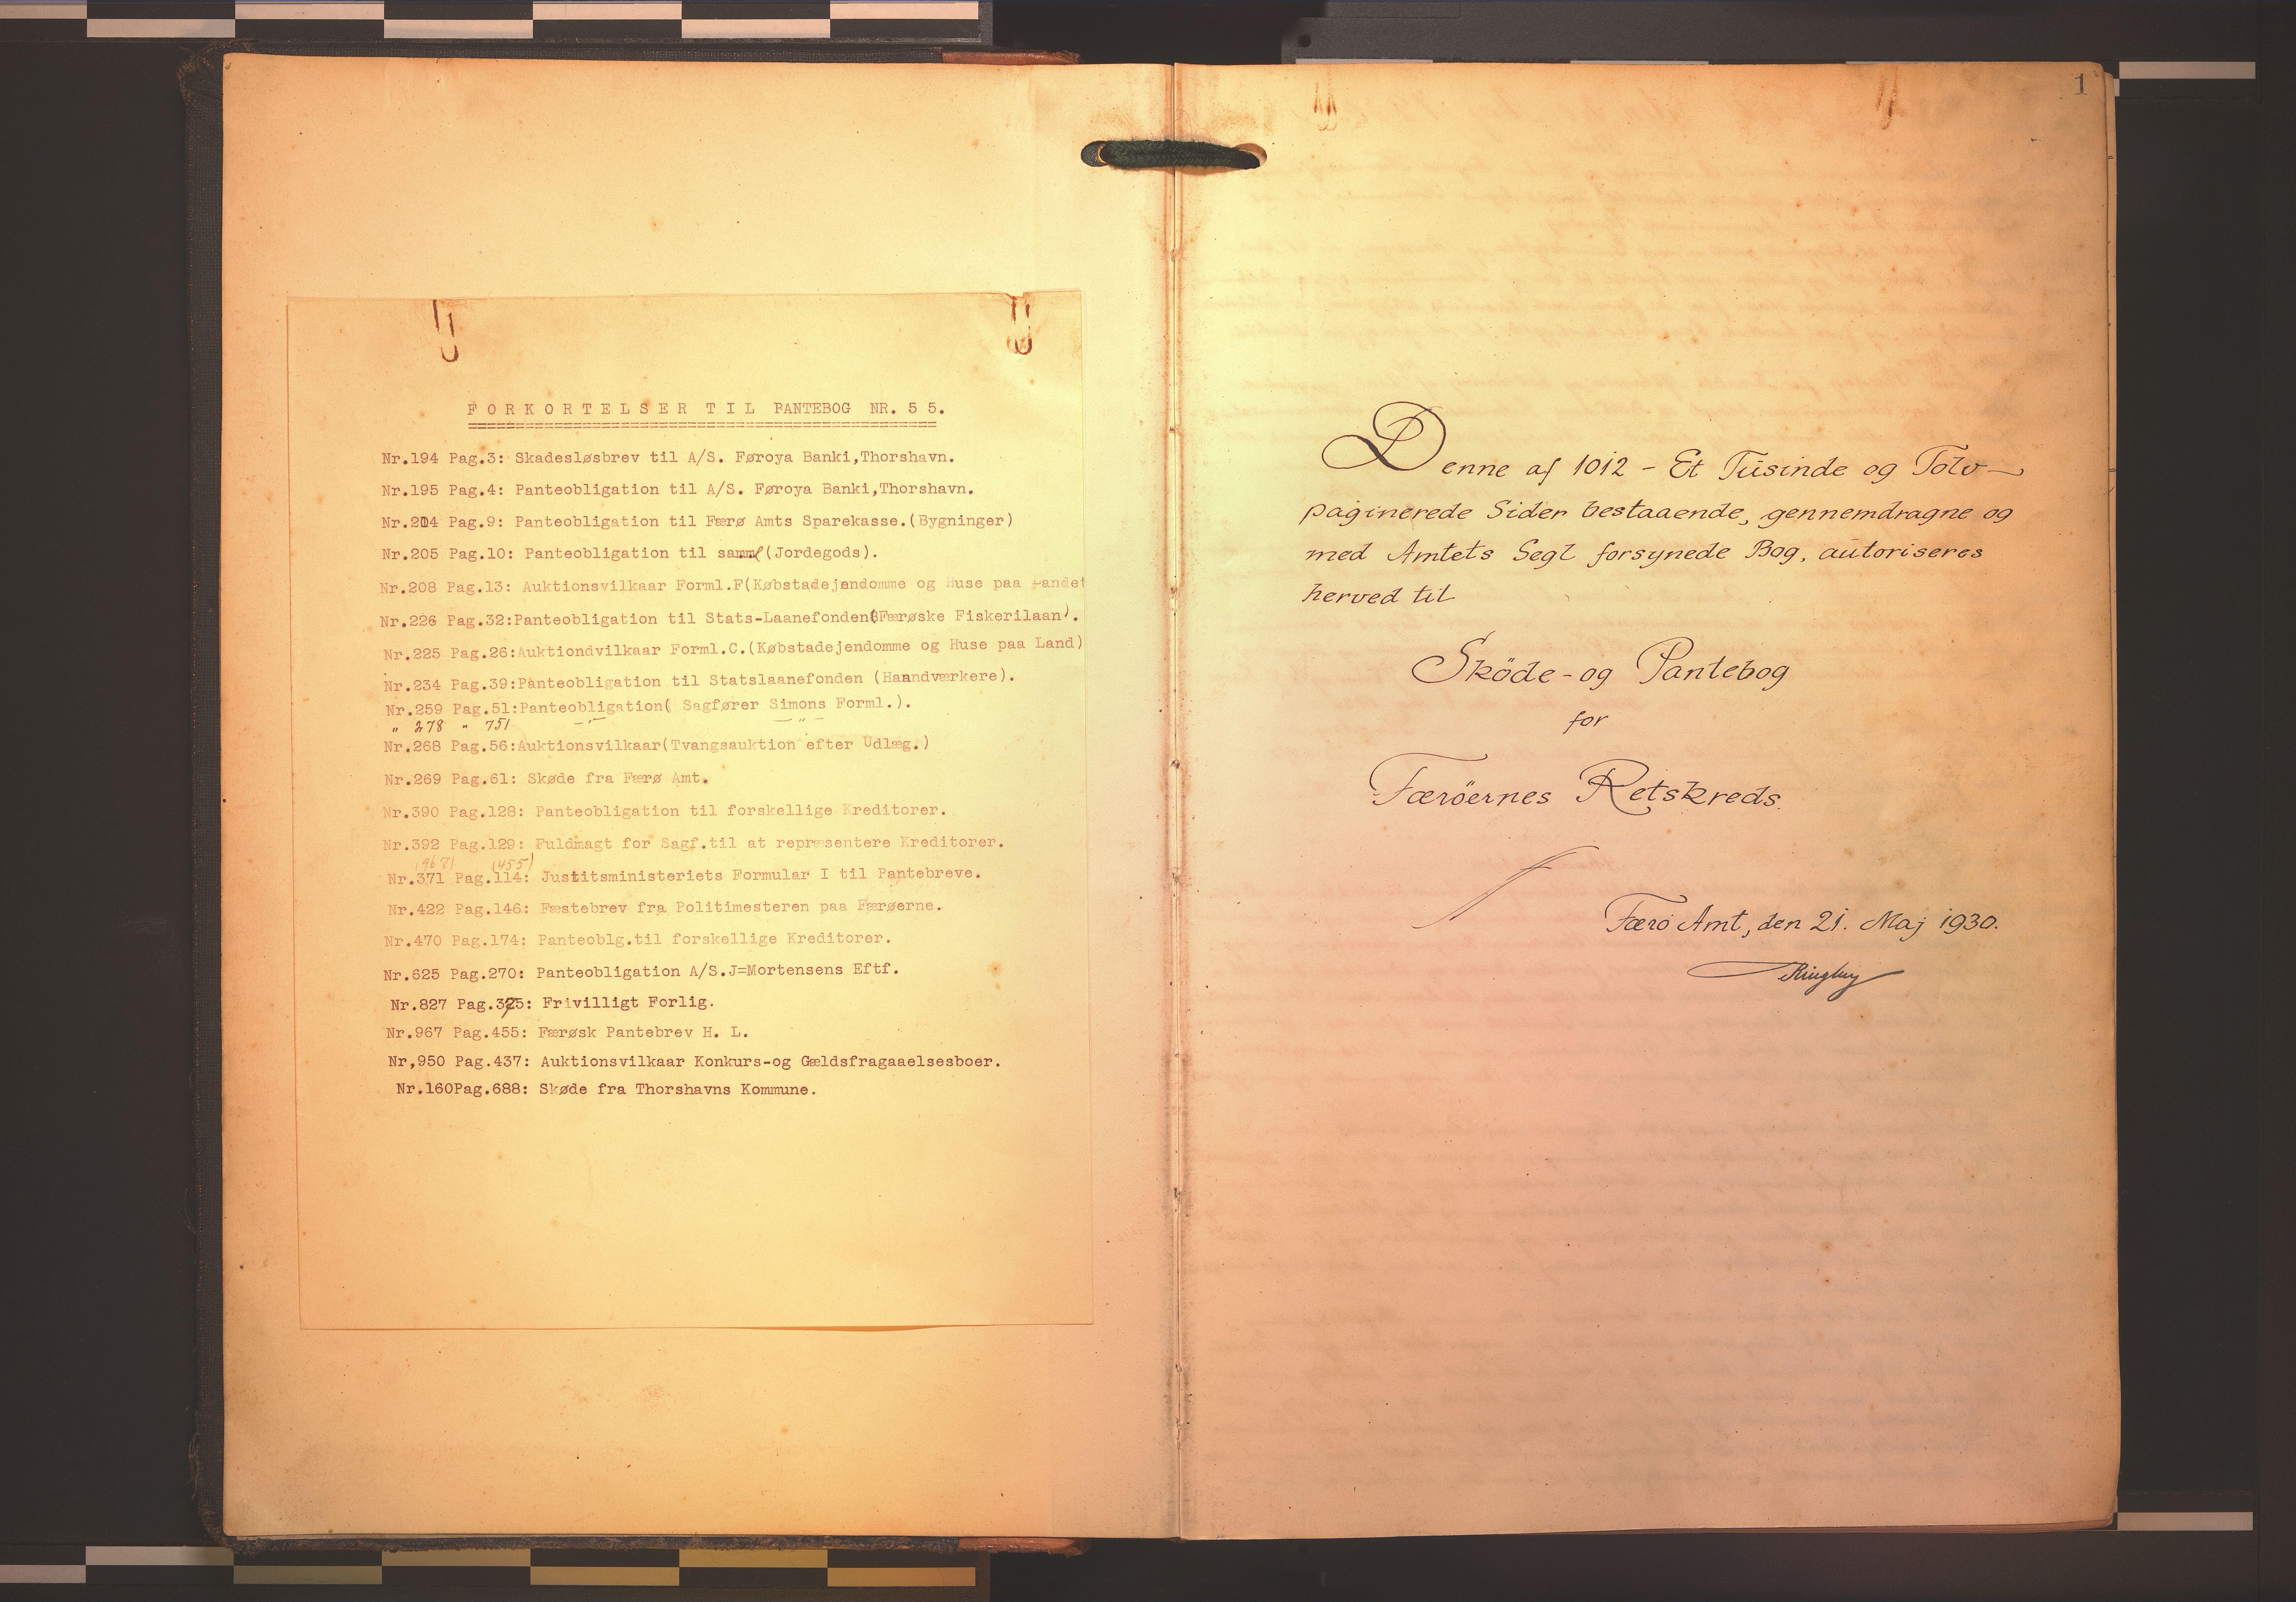 FORKORTELSER TIL PANTEBOG NR. 55.
Nr.194 Pag.3: Skadesløsbrev til A/S. Føroya Banki,Thorshavn.
Nr.195 Pag.4: Panteobligation til A/S. Føroya Banki,Thorshavn.
Nr.204 Pag.9: Panteobligation til Færø Amts Sparekasse.(Bygninger)
Nr.205 Pag.10: Panteobligation til samme (Jordegods).
Nr.208 Pag.13: Auktionsvilkaar Forml.F(Købstadejendomme og Huse paa Landet
Nr.226 Pag.32:Panteobligation til Stats-Laanefonden(Færøske Fiskerilaan).
Nr.225 Pag.26:Auktiondvilkaar Forml.C.(Købstadejendomme og Huse paa Land)
Nr.234 Pag.39:Panteobligation til Statslaanefonden (Haandværkere).
Nr.259 Pag.51:Panteobligation( Sagfører Simons Forml.).
" 278 " 751 -"- -"-
Nr.268 Pag.56:Auktionsvilkaar(Tvangsauktion efter Udlæg.)
Nr.269 Pag.61: Skøde fra Færø Amt.
Nr.390 Pag.128: Panteobligation til forskellige Kreditorer.
Nr.392 Pag.129: Fuldmagt for Sagf.til at repræsentere Kreditorer.
(967) (455)
Nr.371 Pag.114: Justitsministeriets Formular I til Pantebreve.
Nr.422 Pag.146: Fæstebrev fra Politimesteren paa Færøerne.
Nr.470 Pag.174: Panteoblg.til forskellige Kreditorer.
Nr.625 Pag.270: Panteobligation A/S.J=Mortensens Eftf.
Nr.827 Pag.375: Frivilligt Forlig.
Nr.967 Pag.455: Færøsk Pantebrev H. L.
Nr,950 Pag.437: Auktionsvilkaar Konkurs-og Gældsfragaaelsesboer.
Nr.160Pag.688: Skøde fra Thorshavns Kommune.
1
Denne af 1012 - Et Tusinde og Tolv -
paginerede Sider bestaaende, gennemdragne og
med Amtets Segl forsynede Bog, autoriseres
herved til
Sköde - og Pantebog
for
Færöernes Retskreds.
Færö Amt, den 21. Maj 1930.
Ringberg